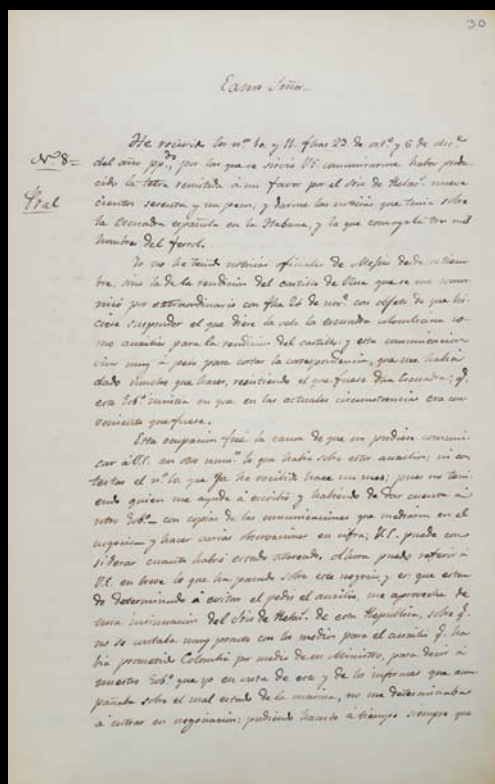 30
Exmo Señor.
He recivido los nos. 10. y 11. fhas 23 de oct.e y 6 de dic.e
Nº 8=
del año pp.do, por los que se sirvió V.E. comunicarme haber produ
Pral
cido la letra remitida á mi favor por el Srio de Relac.s nueve
cientos sesenta y un pesos; y darme las noticias que tenia sobre
la Escuadra española en la Habana, y la que comvoyaba tres mil
hombres del ferrol.
Yo no he tenido noticias oficiales de Mejico desde setiem
bre, sino la de la rendicion del castillo de Ulua que se me comu
nicó por extraordinario con fha 24 de nov.e con objeto de que hi
ciese suspender el que diese la vela la escuadra colombiana co
mo auxilio para la rendicion del castillo; y esta comunicacion
vino muy á pelo para cortar la correspondencia, que me habia
dado mucho que hacer, resistiendo el que fuese dha Escuadra; q.
este Gob.o insistia en que en las actuales circunstancias era con
veniente que fuese.
Esta ocupacion fué la causa de que no pudiese comuni
car á V.E. en otro num.o lo que habia sobre estos auxilios; ni con
testar el nº 10. que ya he recibido hace un mes; pues no teni
endo quien me ayude á escribir y habiendo de dar cuenta á
nstro Gob.o con copias de las comunicaciones que mediaron en el
negocio y hacer varias observaciones en cifra; V.E. puede con
siderar cuanto habré estado atareado. Ahora puedo referir á
V.E. en breve lo que ha pasado sobre este negocio, y es: que estan
do determinado á evitar el pedir el auxilio, me aproveché de
una insinuacion del Srio de Relac.s de esta Republica, sobre q.
no se contaba muy pronto con los medios para el auxilio q. ha
bia prometido Colombia por medio de su Ministro, para decir á
nuestro Gob.o que yo en vista de esto y de los informes que acom
pañaba sobre el mal estado de la marina, no me determinaba
á entrar en negociacion: pudiendo hacerlo á tiempo siempre que